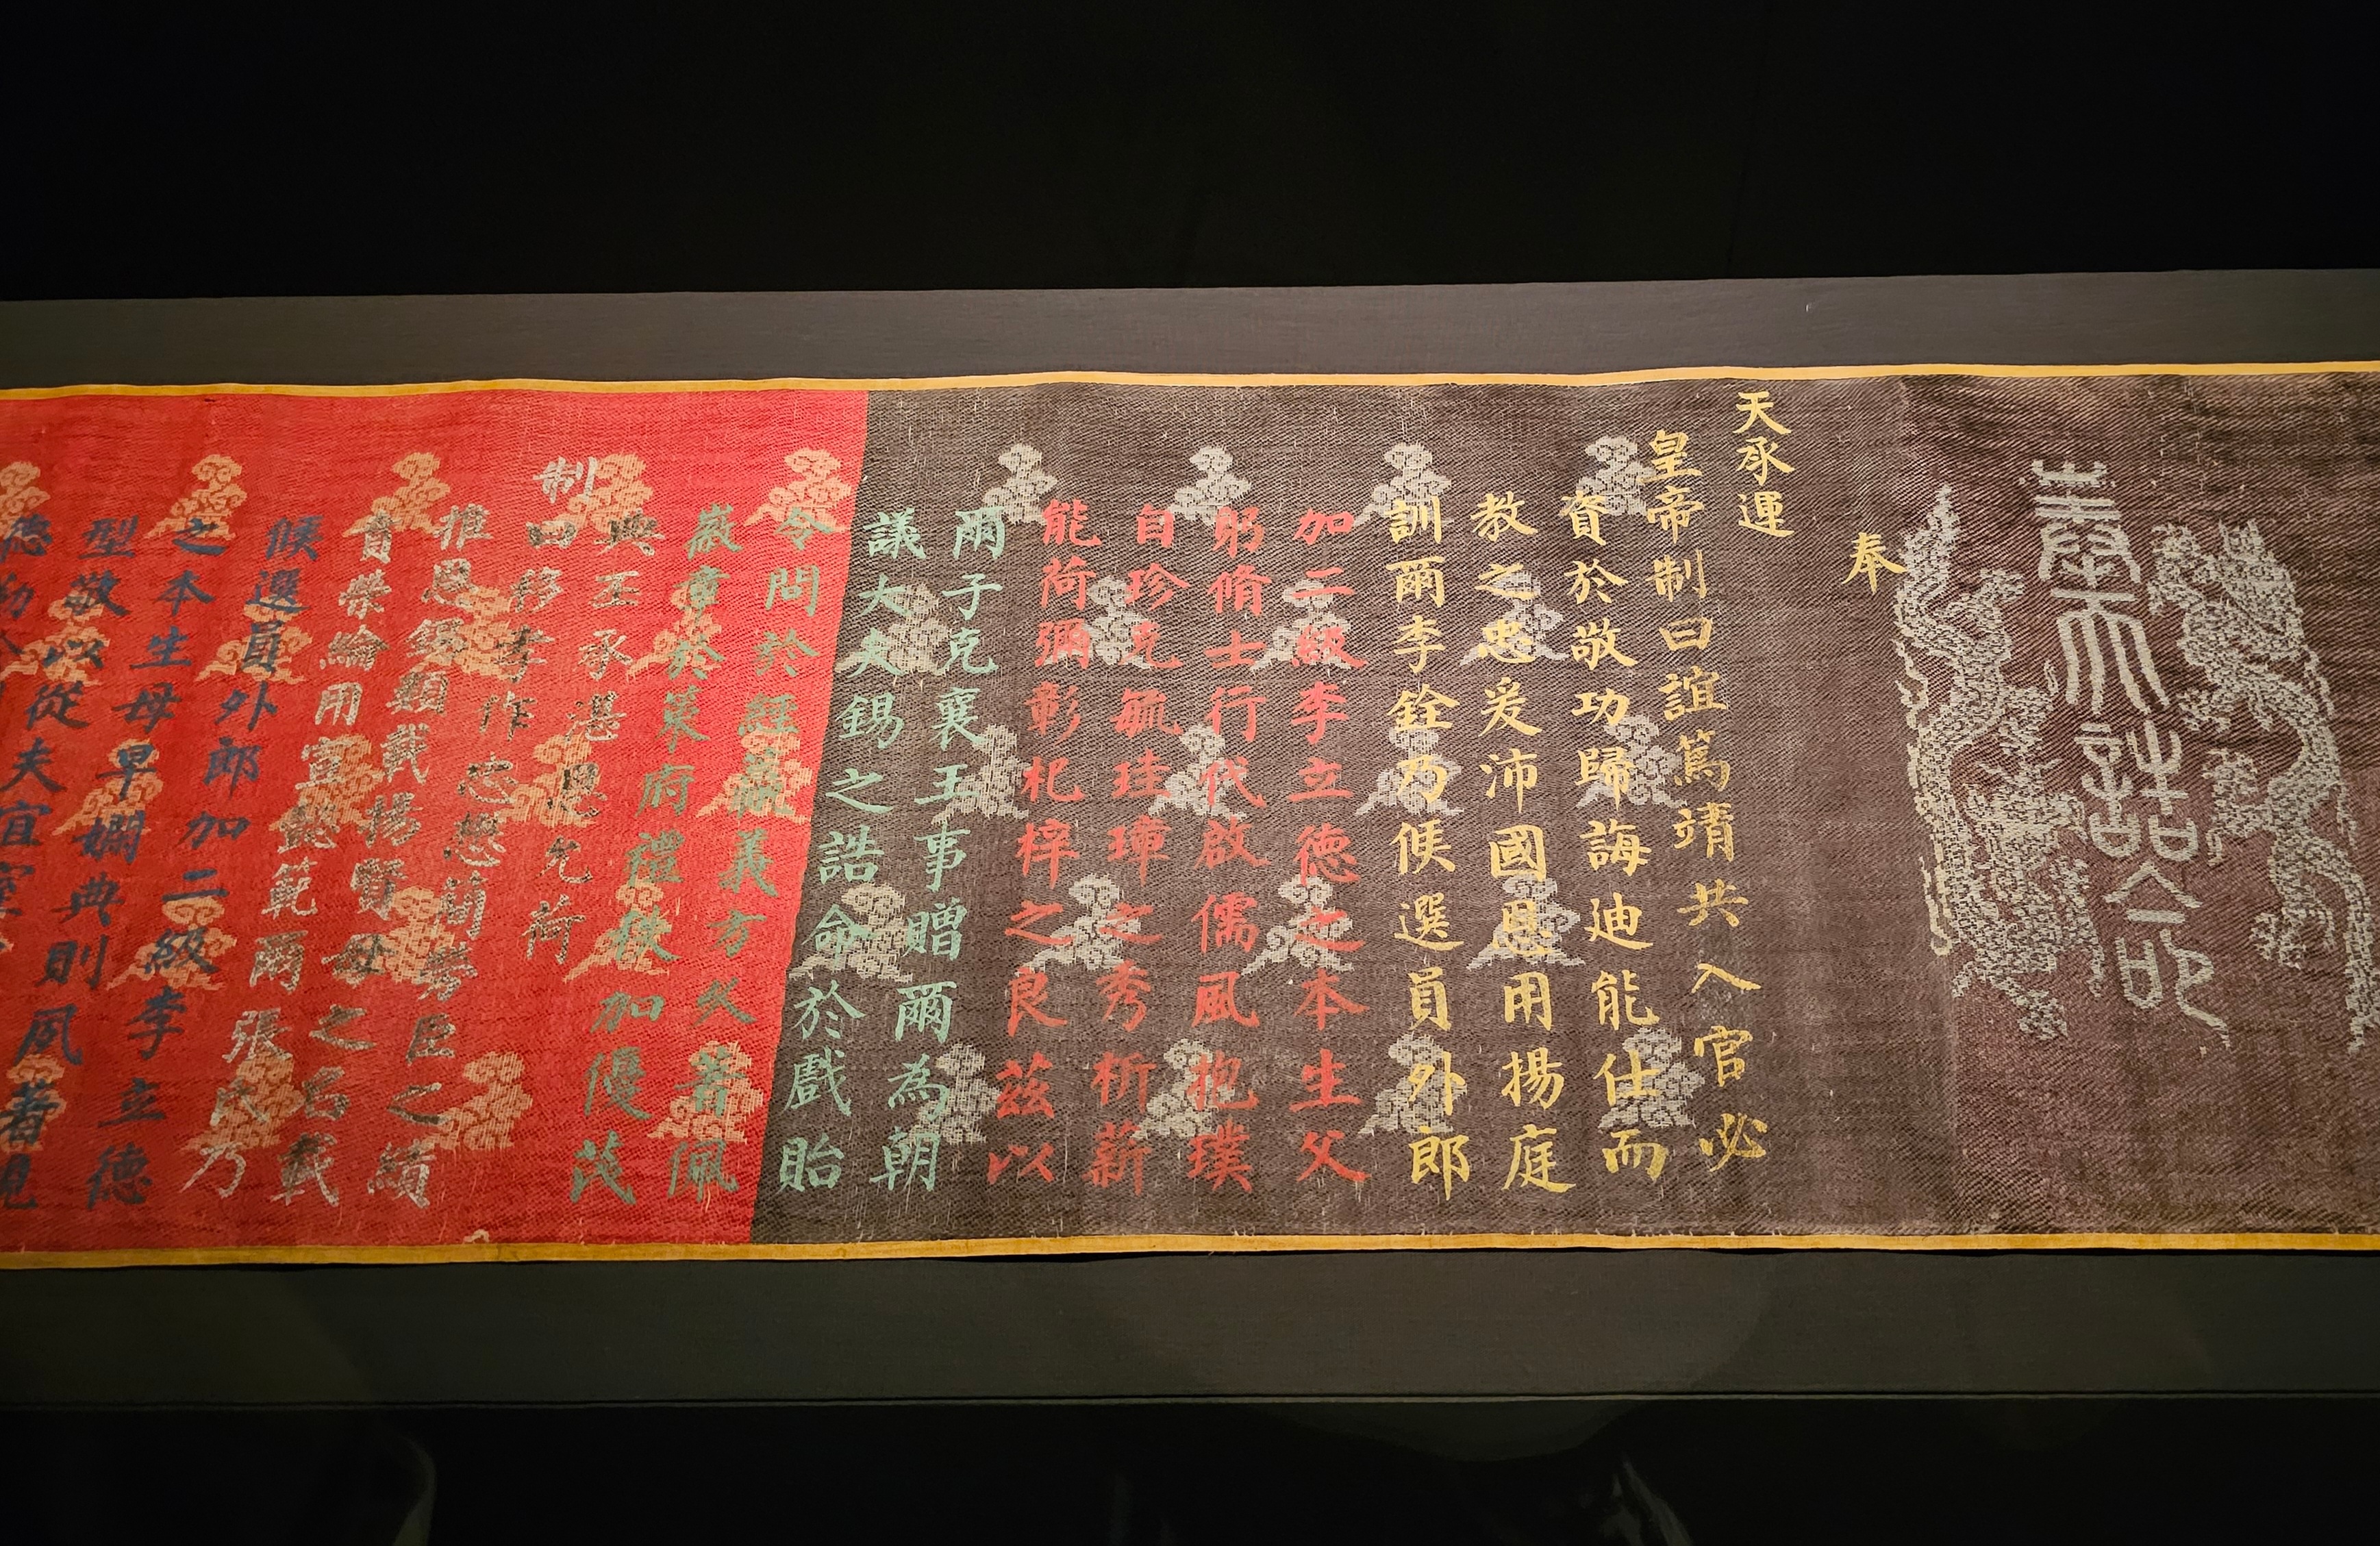 奉天誥命
奉
天承運
皇帝制曰誼篤靖共入官必
資於敬功歸誨迪能仕而
教之忠爰沛國恩用揚庭
訓爾李銓乃候選員外郎
加二級李立德之本生父
躬脩士行代啟儒風抱璞
自珍克毓珪璋之秀析薪
能荷彌彰杞梓之良茲以
爾子克襄王事贈爾為朝
議大夫錫之誥命於戲貽
令問於經籝義方久著佩
徽章於策府禮秩加優茂
典丕承湛恩允荷
制曰移孝作忠懋簡勞臣之績
推恩錫類載揚賢母之名載
賁榮綸用宣懿範爾張氏乃
候選員外郎加二級李立德
之本生母早嫻典則夙著
型敬以從夫宜室
德